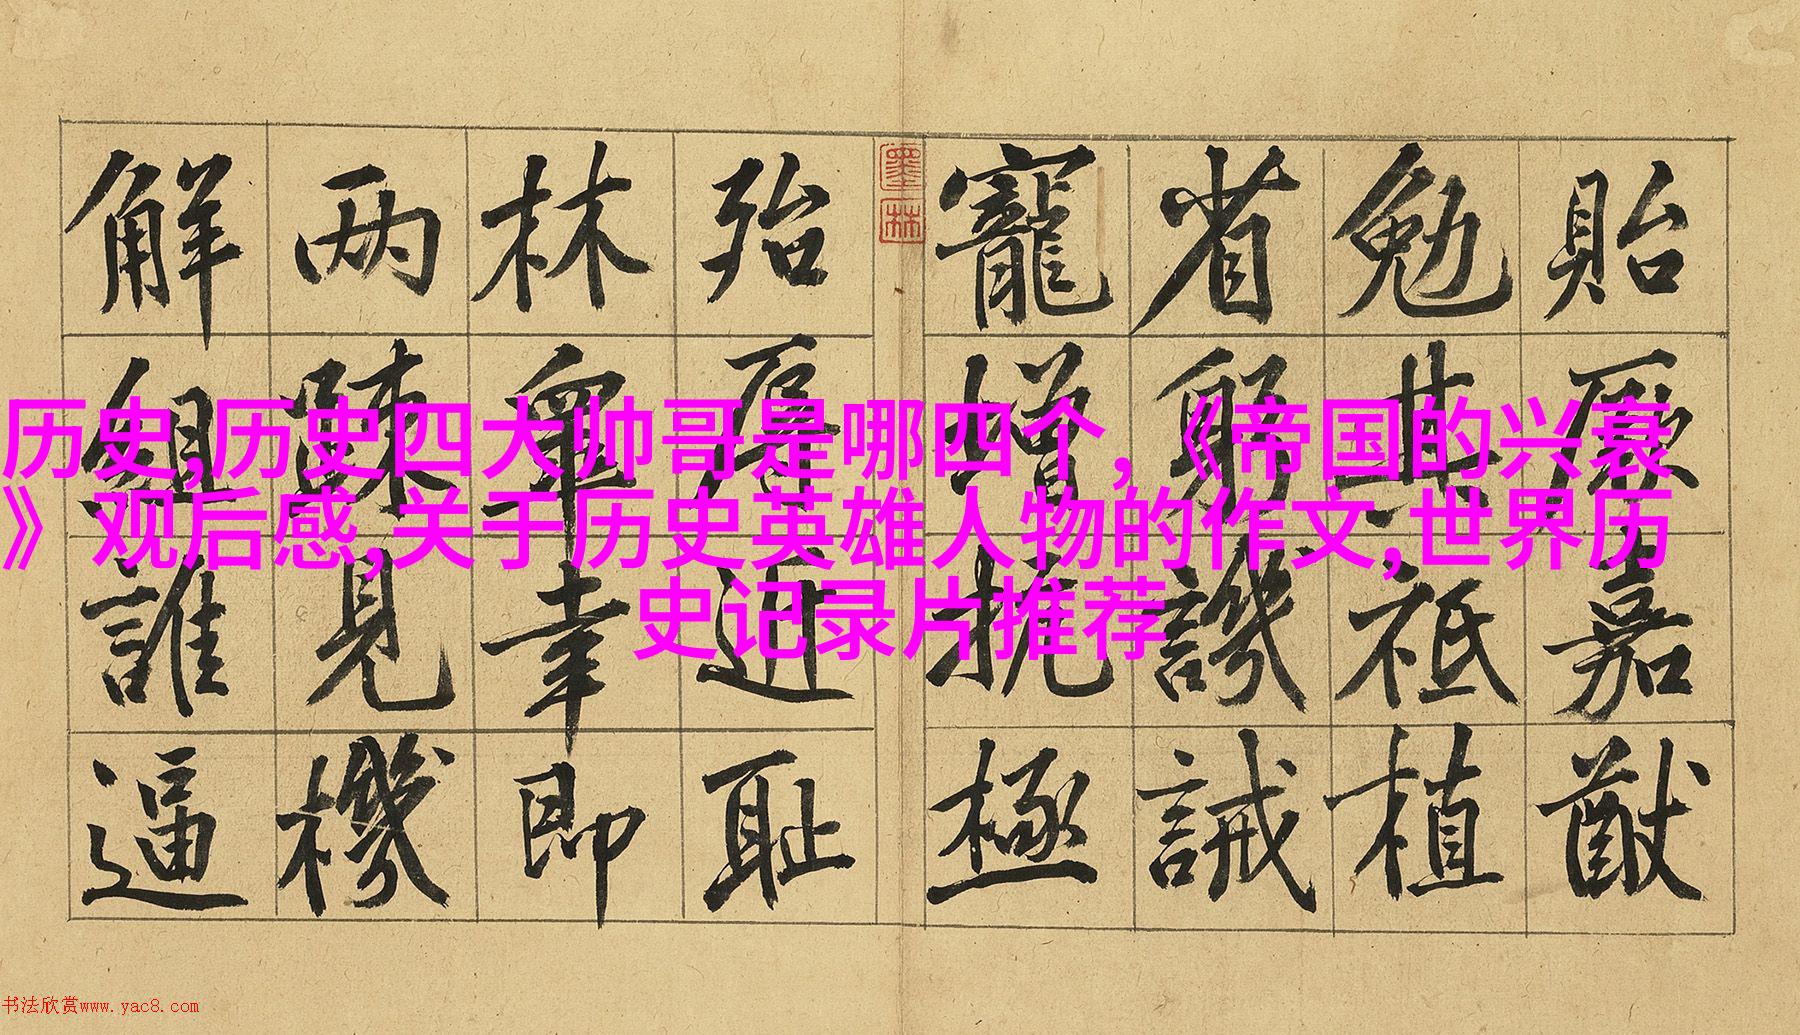 历史,历史四大帅哥是哪四个,《帝国的兴衰
》观后感,关于历史英雄人物的作文,世界历
史记录片推荐
貽厥嘉猷
勉其祗植
省躬譏誡
寵增抗極
墨林
殆辱近耻
林皐幸即
两踈見機
解組誰逼
书法欣赏www.yac8.com